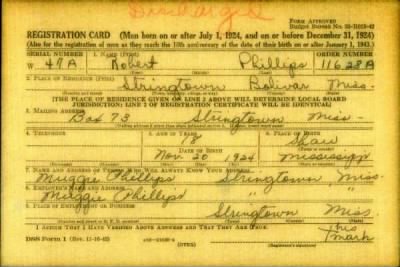 Discharged
Form Approved
REGISTRATION CARD—(Men born on or after July 1, 1924, and on or before December 31, 1924)
(Also for the registration of men as they reach the 18th anniversary of the date of their birth on or after January 1, 1943.)
SERIAL NUMBER 1. NAME (Print) ORDER NUMBER
W 47A Robert Phillips 11628A
2. PLACE OF RESIDENCE (Print)
Stringtown Bolivar Miss.
[THE PLACE OF RESIDENCE GIVEN ON LINE 2 ABOVE WILL DETERMINE LOCAL BOARD
JURISDICTION; LINE 2 OF REGISTRATION CERTIFICATE WILL BE IDENTICAL]
3. MAILING ADDRESS
Box 73 Stringtown Miss.
4. TELEPHONE 5. AGE IN YEARS 6. PLACE OF BIRTH
18 Shaw
DATE OF BIRTH
Nov 20 1924 Mississippi
7. NAME AND ADDRESS OF PERSON WHO WILL ALWAYS KNOW YOUR ADDRESS
Muggie Phillips Stringtown, Miss
8. EMPLOYER'S NAME AND ADDRESS
Muggie Phillips " "
9. PLACE OF EMPLOYMENT OR BUSINESS
Stringtown Miss.
I AFFIRM THAT I HAVE VERIFIED ABOVE ANSWERS AND THAT THEY ARE TRUE.
his
mark
DSS Form 1 (Rev. 11-16-42) (OVER)